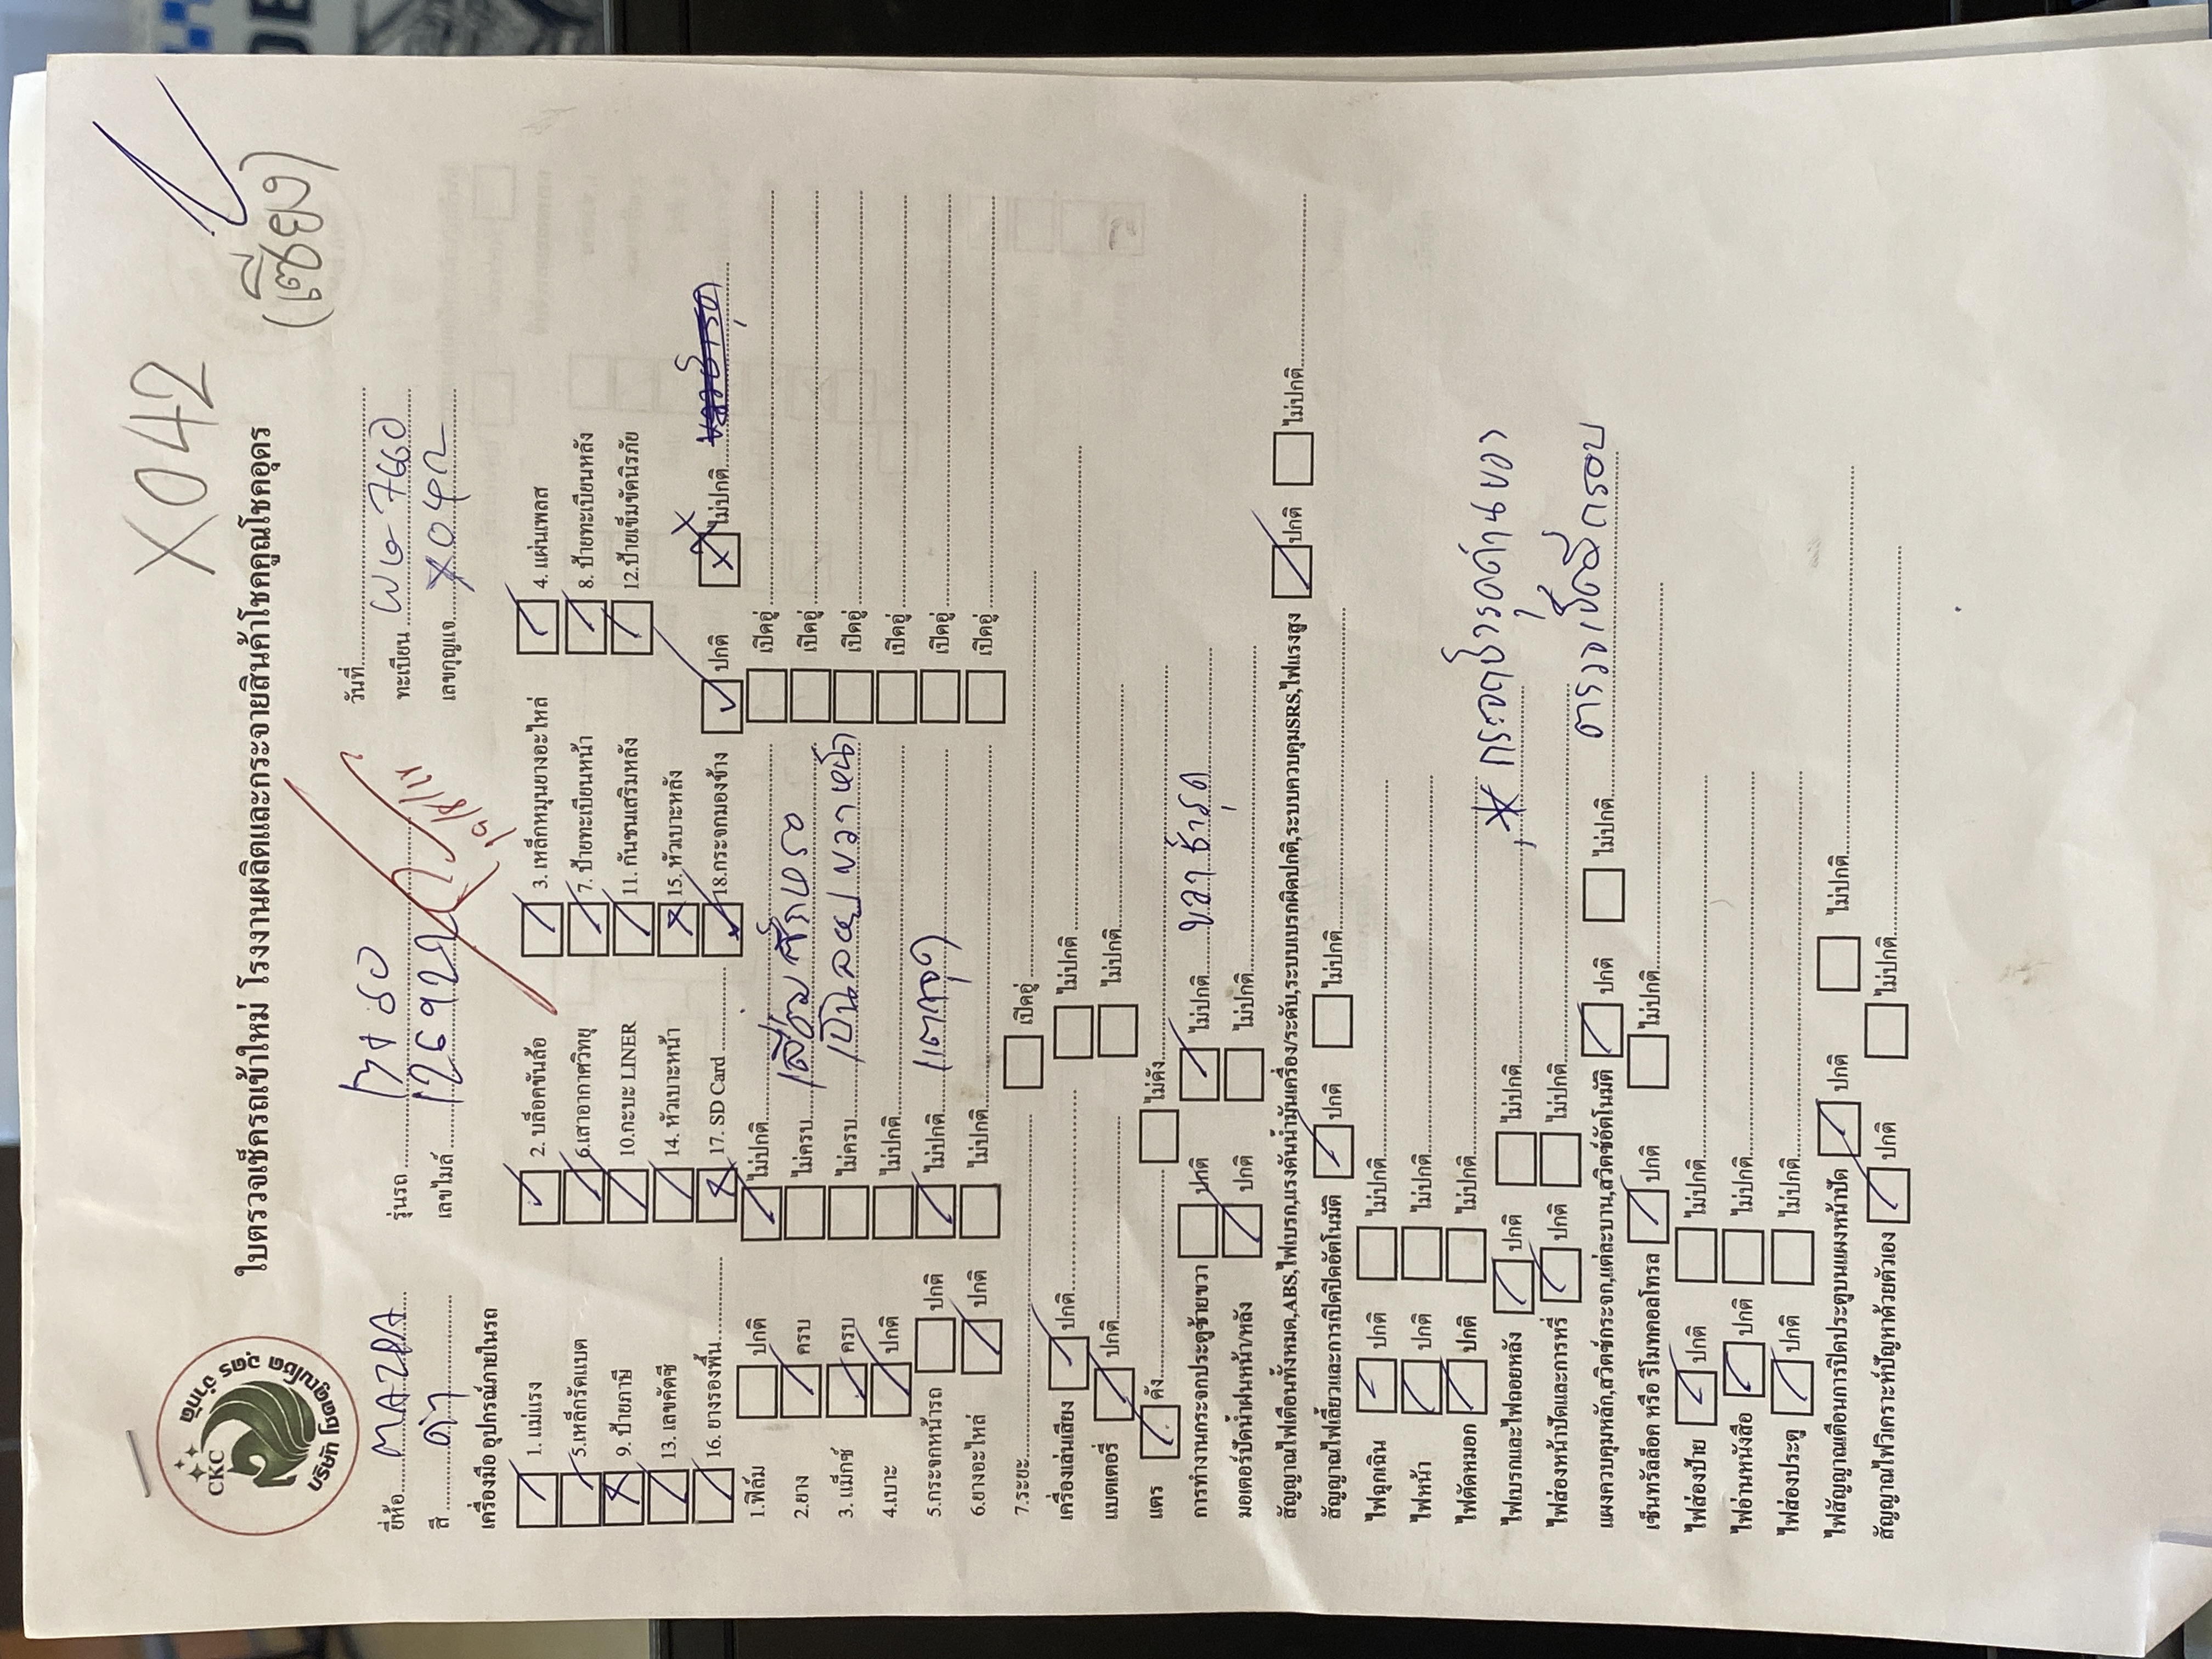 X042
(เซียง)
CKC
บริษัท โชคคูณโชค อุดร จำกัด
ใบตรวจเช็ครถเข้าใหม่ โรงงานผลิตและกระจายสินค้าโชคคูณโชคอุดร
ยี่ห้อ MAZDA รุ่นรถ วันที่
สี ดำ เลขไมล์ 126929 ทะเบียน 7660
เลขกุญแจ X042
เครื่องมือ อุปกรณ์ภายในรถ
1. แม่แรง 2. บล็อคขันล้อ 3. เหล็กหมุนยางอะไหล่ 4. แผ่นเพลส
5.เหล็กรัดแบต 6.เสาอากาศวิทยุ 7. ป้ายทะเบียนหน้า 8. ป้ายทะเบียนหลัง
9. ป้ายภาษี 10.กะบะ LINER 11. กันชนเสริมหลัง 12.ป้ายเข็มขัดนิรภัย
13. เลขคัตซี 14. หัวเบาะหน้า 15. หัวเบาะหลัง
16. ยางรองพื้น 17. SD Card 18.กระจกมองข้าง ปกติ ไม่ปกติ
1.ฟิล์ม ปกติ ไม่ปกติ เปิดอู่
2.ยาง ครบ ไม่ครบ เปิดอู่
3. แม็กซ์ ครบ ไม่ครบ เป็นลอย ขวาหน้า เปิดอู่
4.เบาะ ปกติ ไม่ปกติ เปิดอู่
5.กระจกหน้ารถ ปกติ ไม่ปกติ แตกจุด เปิดอู่
6.ยางอะไหล่ ปกติ ไม่ปกติ เปิดอู่
7.ระยะ เปิดอู่
เครื่องเล่นเสียง ปกติ ไม่ปกติ
แบตเตอรี่ ปกติ ไม่ปกติ
แตร ดัง ไม่ดัง
การทำงานกระจกประตูซ้ายขวา ปกติ ไม่ปกติ ขวา ชำรุด
มอเตอร์ปัดน้ำฝนหน้า/หลัง ปกติ ไม่ปกติ
สัญญาณไฟเตือนทั้งหมด,ABS,ไฟเบรก,แรงดันน้ำมันเครื่อง/ระดับ,ระบบเบรกผิดปกติ,ระบบควบคุมSRS,ไฟแรงสูง ปกติ ไม่ปกติ
สัญญาณไฟเลี้ยวและการเปิดปิดอัตโนมัติ ปกติ ไม่ปกติ
ไฟฉุกเฉิน ปกติ ไม่ปกติ
ไฟหน้า ปกติ ไม่ปกติ
ไฟตัดหมอก ปกติ ไม่ปกติ
ไฟเบรกและไฟถอยหลัง ปกติ ไม่ปกติ * กระจกชำรุดด้านขวา
ไฟส่องหน้าปัดและการหรี่ ปกติ ไม่ปกติ
แผงควบคุมหลัก,สวิตช์กระจก,แต่ละบาน,สวิตช์อัตโนมัติ ปกติ ไม่ปกติ ตรวจเช็คอีกรอบ
เซ็นทรัลล็อค หรือ รีโมทคอลโทรล ปกติ ไม่ปกติ
ไฟส่องป้าย ปกติ ไม่ปกติ
ไฟอ่านหนังสือ ปกติ ไม่ปกติ
ไฟส่องประตู ปกติ ไม่ปกติ
ไฟสัญญาณเตือนการปิดประตูบนแผงหน้าปัด ปกติ ไม่ปกติ
สัญญาณไฟวิเคราะห์ปัญหาด้วยตัวเอง ปกติ ไม่ปกติ